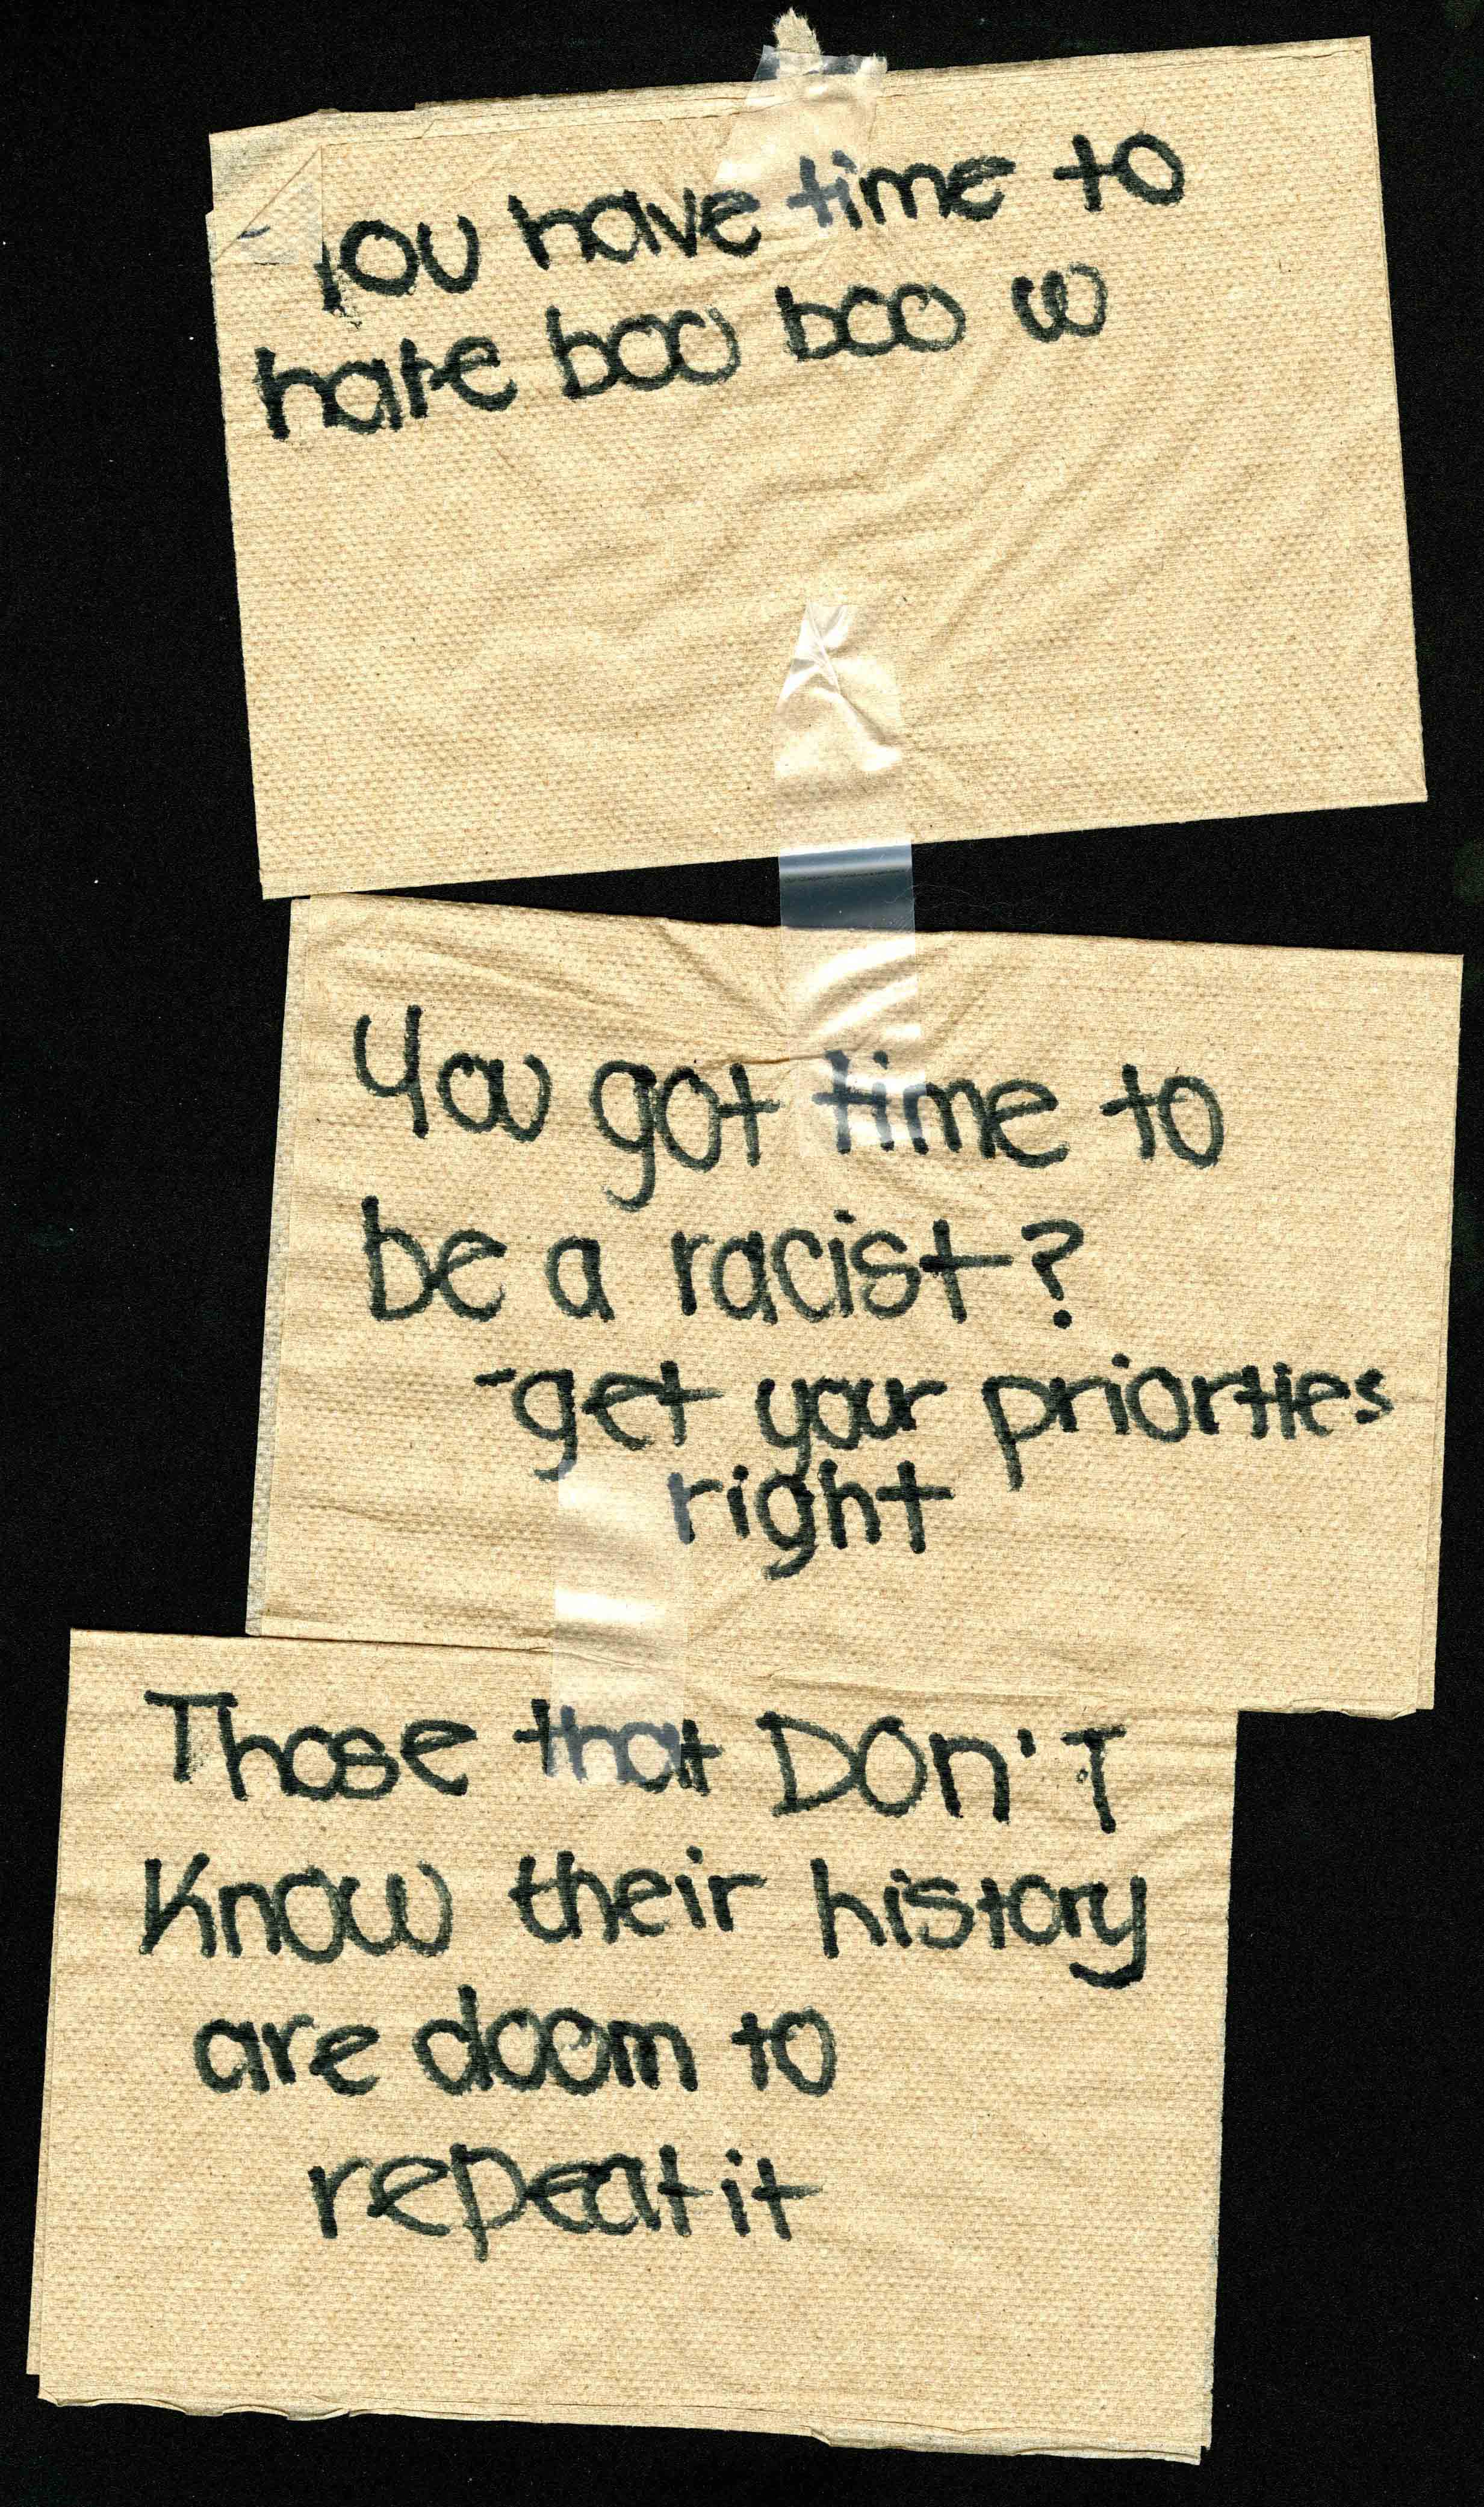 You have time to
hate boo boo
You got time to
be a racist?
-get your priorties
right
Those that DON'T
Know their history
are doom to
repeat it